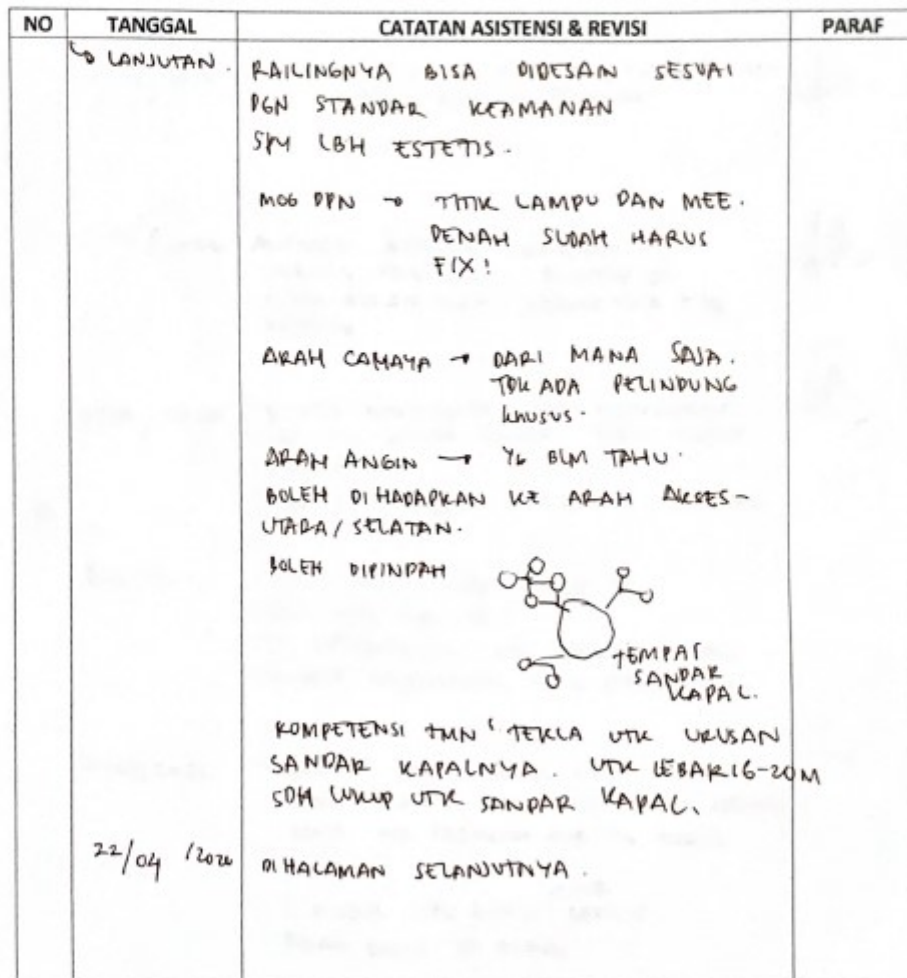 NO TANGGAL CATATAN ASISTENSI & REVISI PARAF
↳ LANJUTAN.
RAILINGNYA BISA DIDESAIN SESUAI
DGN STANDAR KEAMANAN
SPY LBH ESTETIS.
MGG DPN → TITIK LAMPU DAN MEE.
DENAH SUDAH HARUS
FIX!
ARAH CAHAYA → DARI MANA SAJA.
TDK ADA PELINDUNG
KHUSUS.
ARAH ANGIN → YG BLM TAHU.
BOLEH DIHADAPKAN KE ARAH AKSES-
UTARA/SELATAN.
BOLEH DIPINDAH
TEMPAT
SANDAR
KAPAL.
KOMPETENSI TMN² TEKLA UTK URUSAN
SANDAR KAPALNYA. UTK LEBAR 16-20M
SDH CUKUP UTK SANDAR KAPAL.
22/04
DI HALAMAN SELANJUTNYA.